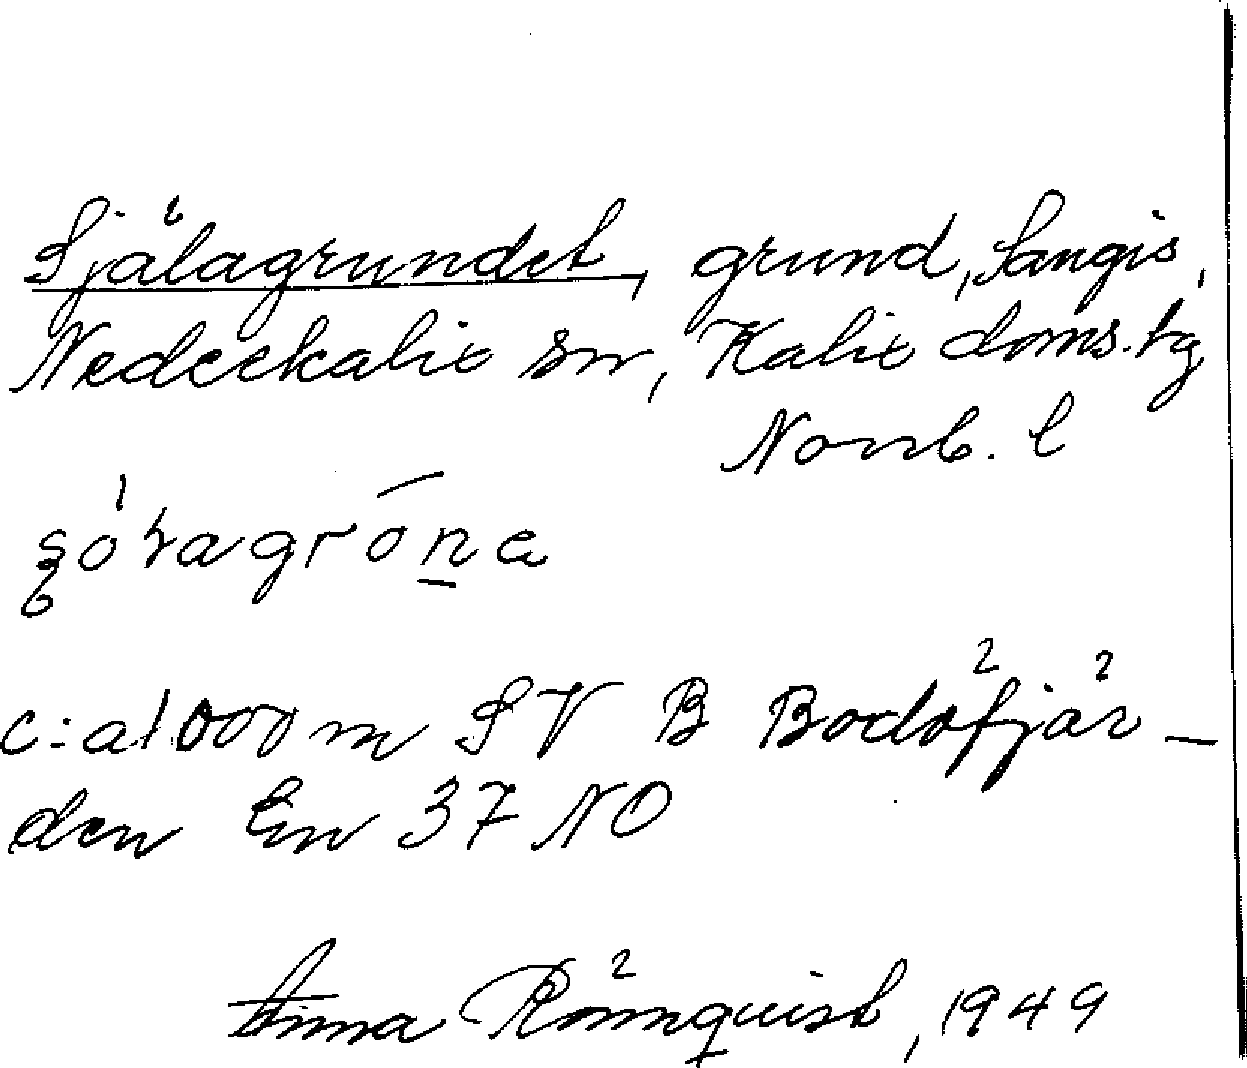 Själagrundet, grund, Sangis,
Nederkalix sn, Kalix doms.tg
Norrb. l
c:a 1000 m SV B Bodöfjär-
den En 37 NO
Anna Rönnquist, 1949